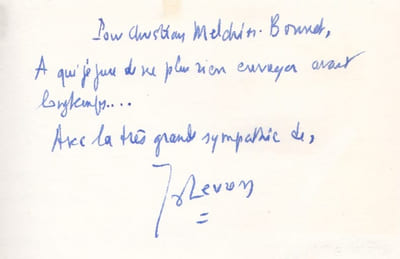 Pour Christian Melchior-Bonnet,
A qui je jure de ne plus rien envoyer avant
longtemps....
Avec la très grande sympathie de,
J Levron